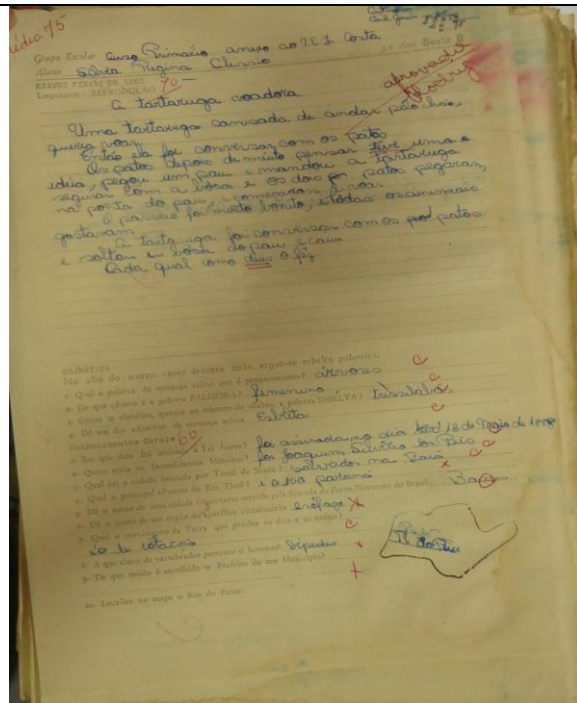 média 75
Grupo Escolar Curso Primário anexo ao I.E.J. Costa
Aluno Silvia Regina
EXAMES FINAIS DE 1967
Linguagem - REPRODUÇÃO 70
aprovada
A tartaruga voadora
Uma tartaruga cansada de andar pelo chão,
queria voar.
Então ela foi conversar com os patos
Os patos depois de muito pensar teve uma
idéia, pegou um pau e mandou a tartaruga
segurar com a boca e os dois patos pegaram
na ponta do pau, e começaram a voar.
O passeio foi muito bonito, e todos os animais
gostaram.
A tartaruga foi conversar com os patos
e soltou a boca do pau e caiu
Cada qual como deus o fêz
GRAMÁTICA
No alto do morro, entre árvores, ergue-se esbelta palmeira.
1- Qual a palavra da sentença acima que é proparoxítona? árvores
2- De que gênero é a palavra PALMEIRA? femenino
3- Como se classifica, quanto ao número de sílabas, a palavra ESBELTA? trissílabas
4- Dê um dos adjetivos da sentença acima Esbelta
Conhecimentos Gerais 60
1- Em que data foi assinada a Lei Áurea? foi assinada no dia 18 de Maio de 1888
2- Quem traiu os Inconfidentes Mineiros? foi Joaquim Silvério dos Reis
3- Qual foi a cidade fundada por Tomé de Souza? Salvador na Baía
4- Qual o principal afluente do Rio Tietê? é o rio paraná
5- Dê o nome de uma cidade importante servida pela Estrada de Ferro Noroeste do Brasil Bauru
6- Dê o nome de um órgão do aparelho circulatório esôfago
7- Qual o movimento da Terra que produz os dias e as noites?
é o de rotação
8- A que classe de vertebrados pertence o homem? bípedes
9- De que modo é escolhido o Prefeito de um Município?
10- Localize no mapa o Rio do Peixe.
R. do Peixe